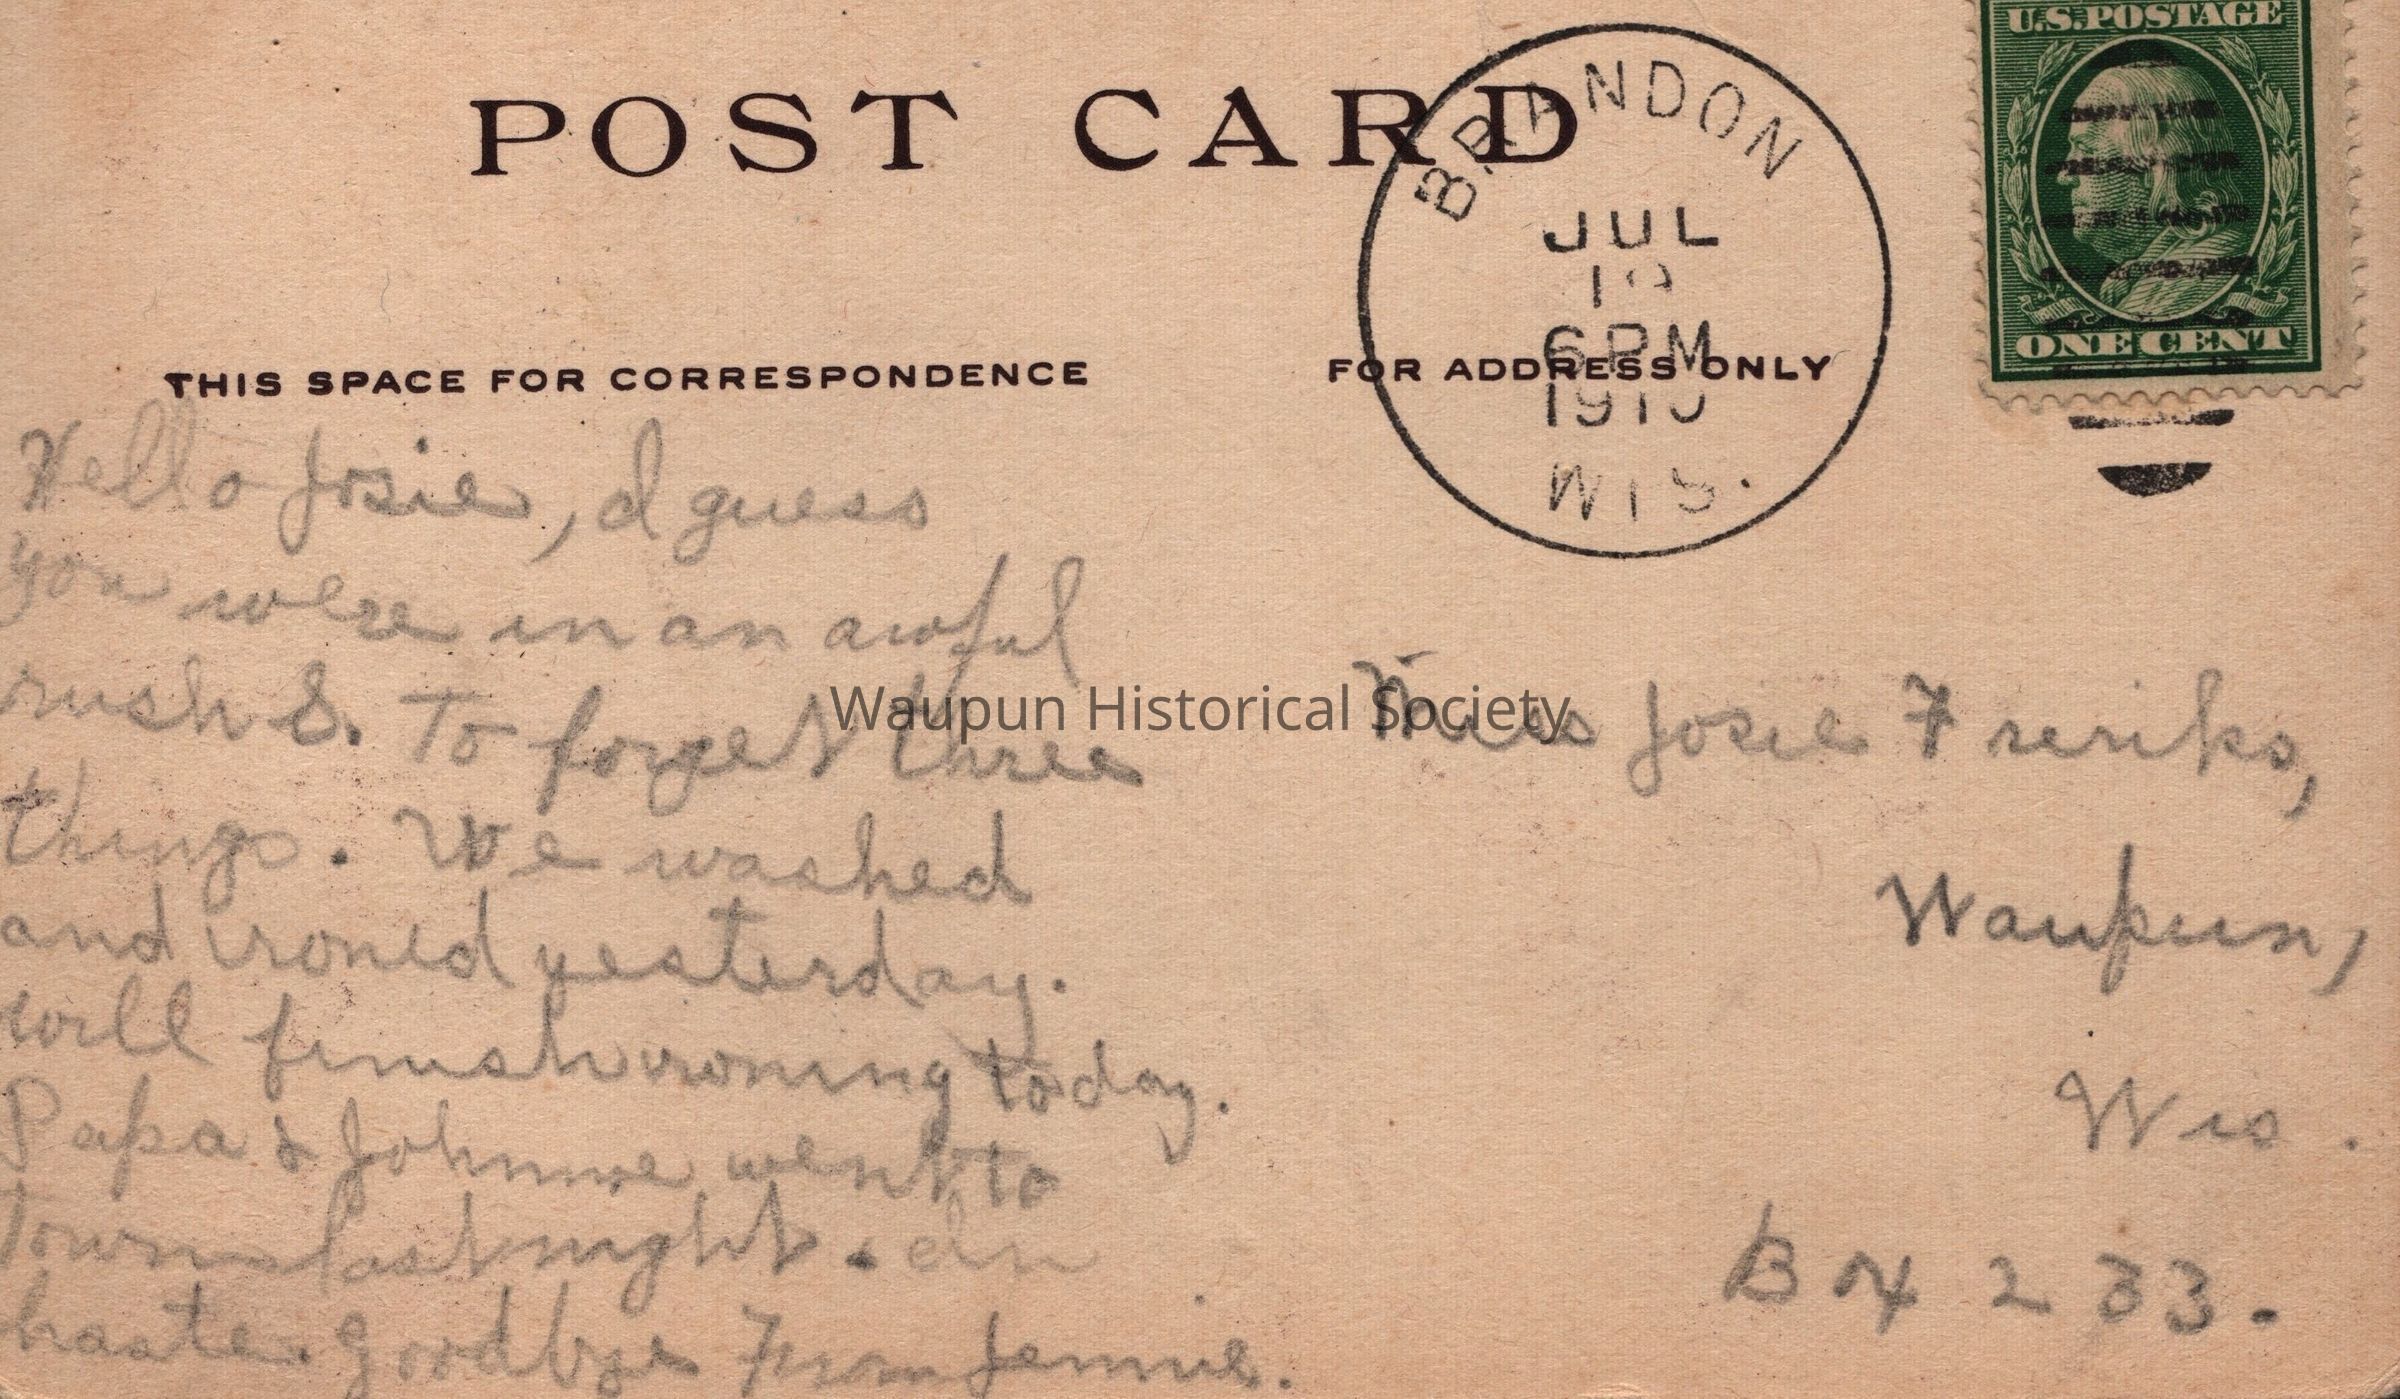 U.S. POSTAGE
POST CARD
BRANDON
JUL
6 PM
WIS.
ONE CENT
THIS SPACE FOR CORRESPONDENCE
FOR ADDRESS ONLY
Hello Josie, I guess
you were in an awful
rush S. To forget three
things. We washed
and ironed yesterday.
will finish ironing today.
Papa & Johnnie went to
Town last night. In
haste. Goodbye From Jennie.
Miss Josie Freriks,
Waupun,
Wis.
Box 233.
Waupun Historical Society